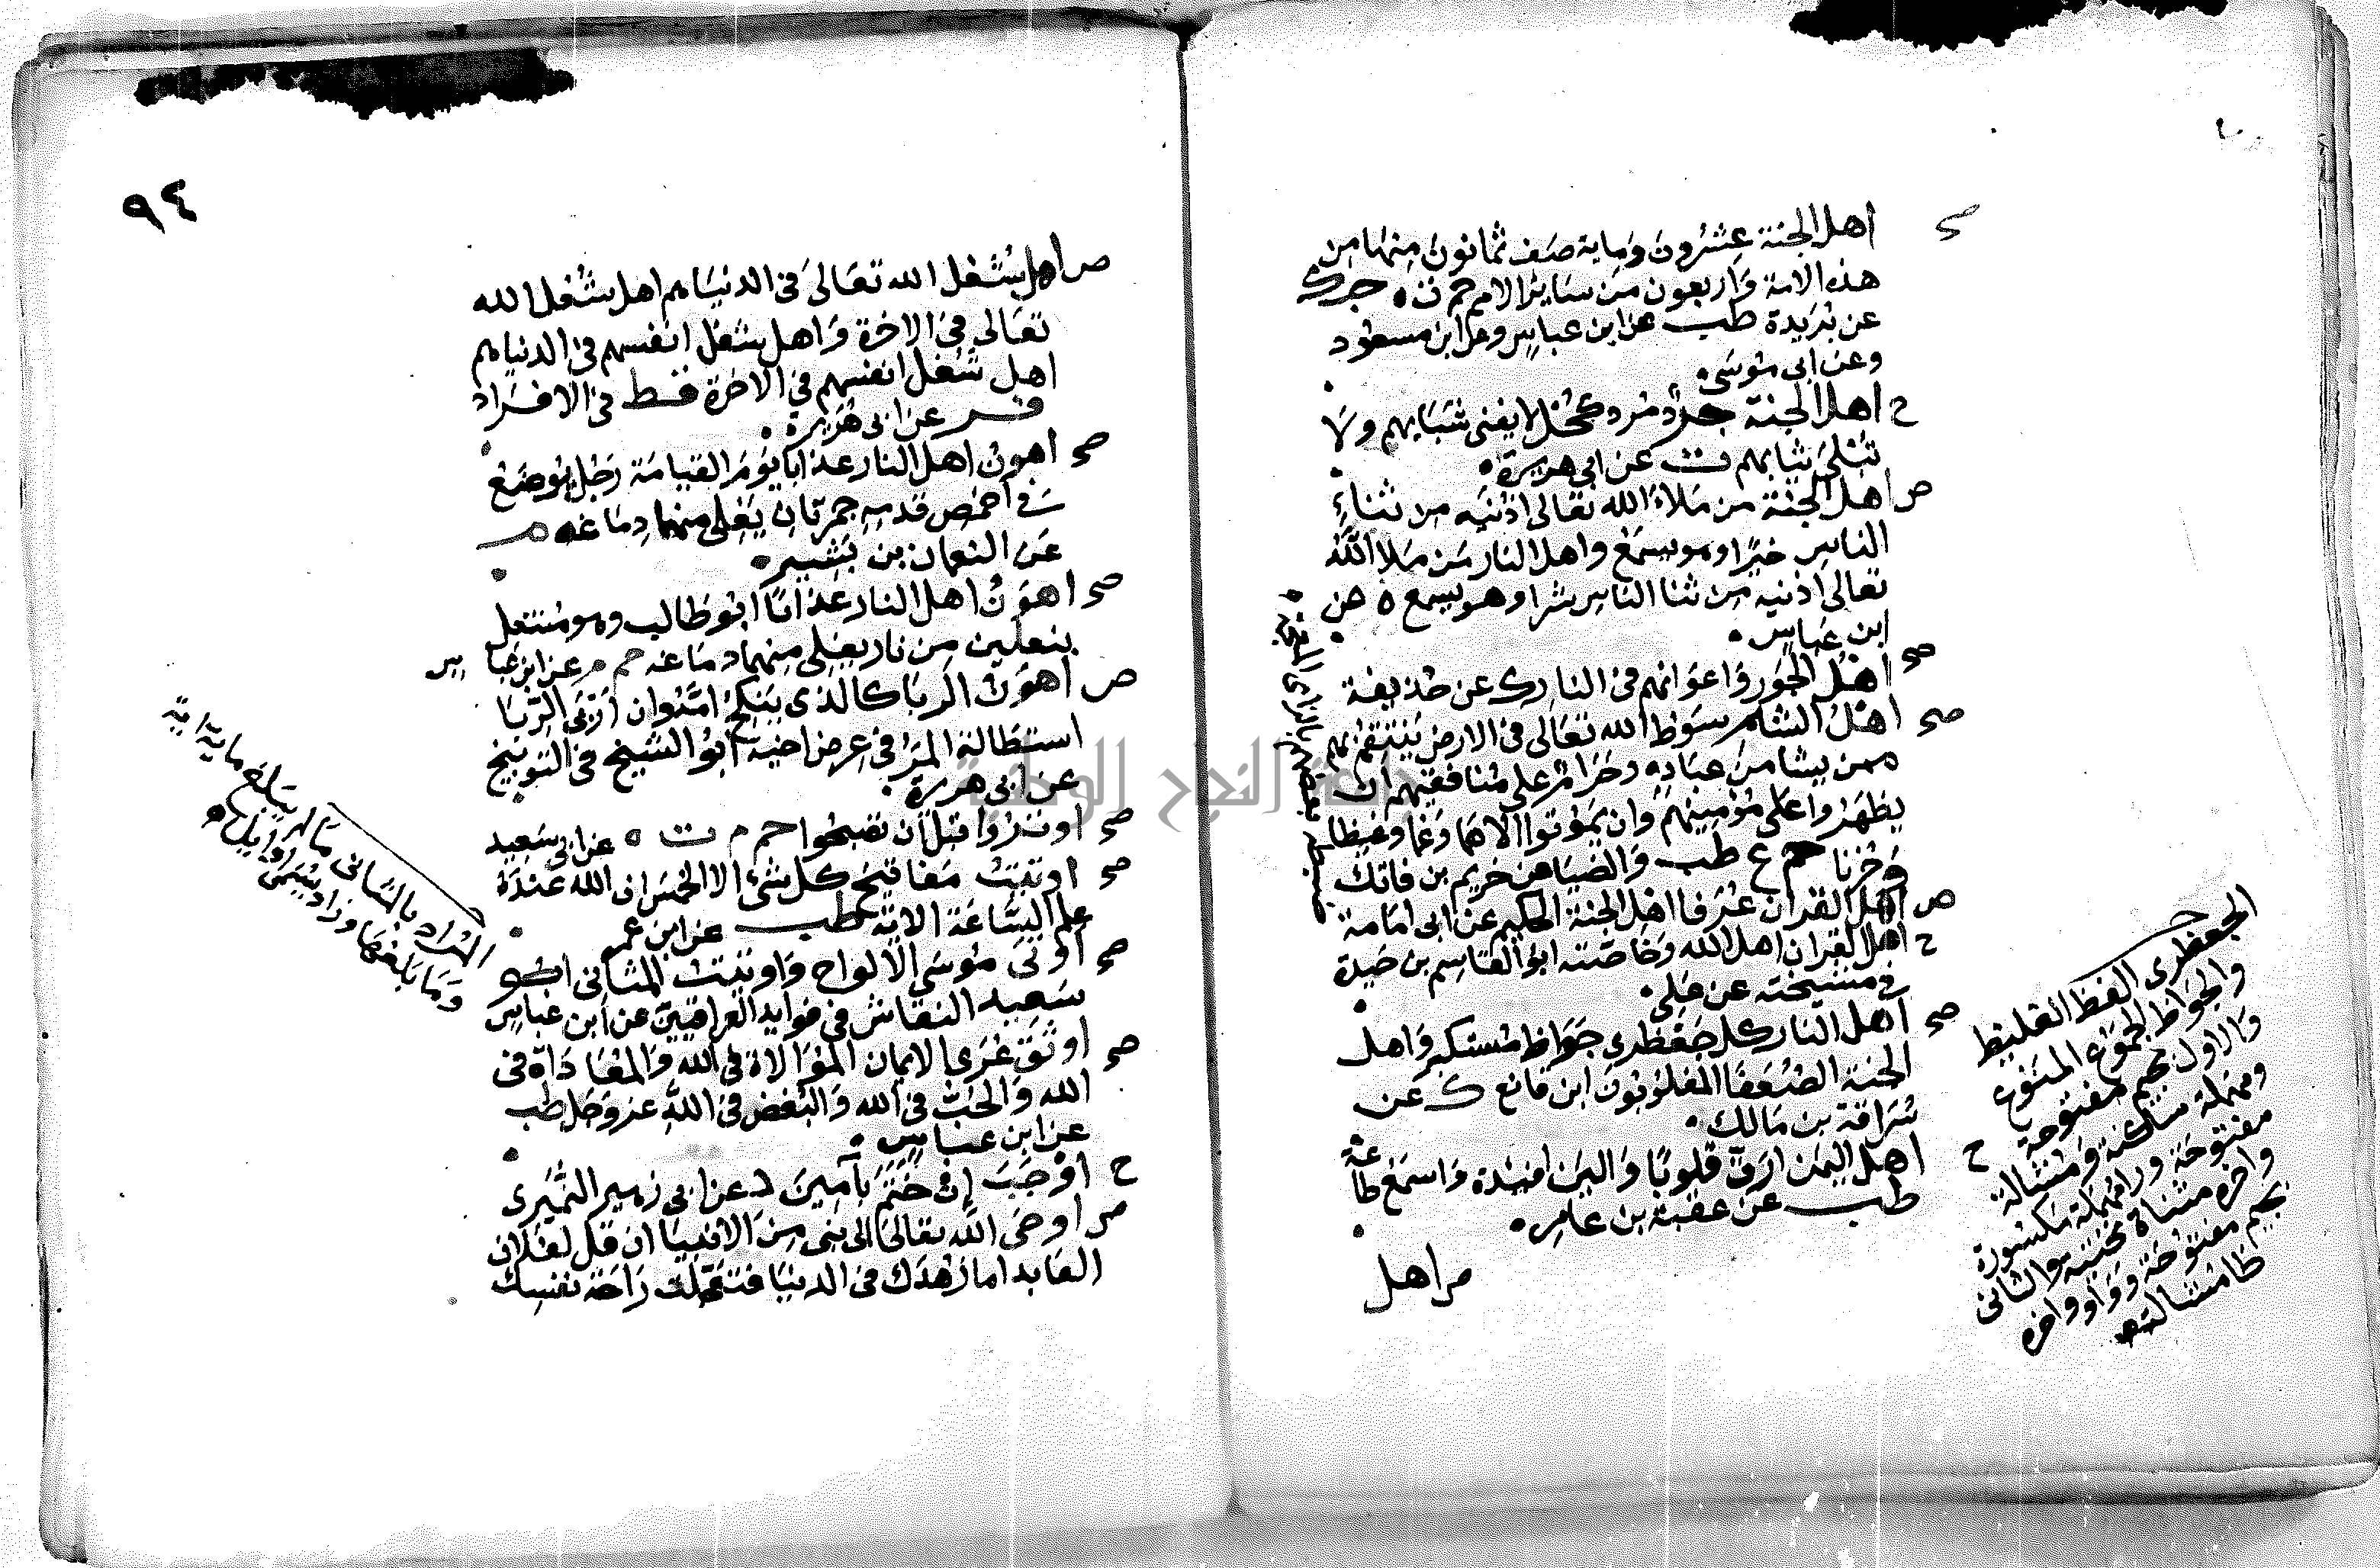 صح اهل الجنة عشرون وماية صف ثمانون منها من
هذه الامة واربعون من ساير الامم حم ت ه حب ك
عن بريدة طب عن ابن عباس وعن ابن مسعود
وعن ابى موسى
ح اهل الجنة جرد مرد كحل لا يفنى شبابهم ولا
تبلى ثيابهم ت عن ابى هريرة
ض اهل الجنة من ملاء الله تعالى اذنيه من ثناء
الناس خيرا وهو يسمع واهل النار من ملا الله
تعالى اذنيه من ثنا الناس شرا وهو يسمع ه عن
ابن عباس
صح اهل الجور واعوانهم فى النار ك عن حذيفة
صح اهل الشام سوط الله تعالى فى الارض ينتقم بهم
ممن يشا من عباده وحرام على منافقيهم ان
يظهروا على مومنيهم وان يموتوا الا هما وغما وغيظا
وحزنا حم ع طب والضيا عن خريم بن فاتك
ض اهل القران عرفا اهل الجنة الحكيم عن ابى امامة
ح اهل القران اهل الله وخاصته ابو القاسم بن حيدة
فى مشيخته عن على
صح اهل النار كل جعظرى جواظ مستكبر واهل
الجنة الضعفا المغلوبون ابن قانع ك عن
سراقة بن مالك
ح اهل اليمن ارق قلوبا والين افيدة واسمع طاعة
طب عن عقبة بن عامر
ض اهل
الجعظرى الفظ الغليظ
والجواظ الجموع المنوع
والاول بجيم مفتوحة
ومهملة ساكنة ومشالة
مفتوحة ورا مهملة مكسورة
واخره مثناة تحتية والثانى
بجيم مفتوحة وواو واخره
ظا مشالة
٩٤
ض اهل شغل الله تعالى فى الدنيا هم اهل شغل الله
تعالى فى الاخرة واهل شغل انفسهم فى الدنيا هم
اهل شغل انفسهم فى الاخرة قط فى الافراد
فر عن ابى هريرة
صح اهون اهل النار عذابا يوم القيامة رجل يوضع
فى اخمص قدميه جمرتان يغلى منهما دماغه م
عن النعمان بن بشير
صح اهون اهل النار عذابا ابو طالب وهو منتعل
بنعلين من نار يغلى منهما دماغه حم م عن ابن عباس
ض اهون الربا كالذى ينكح امه وان اربى الربا
استطالة المرء فى عرض اخيه ابو الشيخ فى التوبيخ
عن ابى هريرة
صح اوتروا قبل ان تصبحوا حم م ت ه عن ابى سعيد
صح اوتيت مفاتيح كل شئ الا الخمس ان الله عنده
علم الساعة الاية طب عن ابن عمر
صح اوتى موسى الالواح واوتيت المثانى ابو
سعيد النقاش فى فوايد العراقيين عن ابن عباس
صح اوثق عرى الايمان الموالاة فى الله والمعاداة فى
الله والحب فى الله والبغض فى الله عز وجل طب
عن ابن عباس
ح اوجب ان ختم بآمين د عن ابى زهير النميرى
ض اوحى الله تعالى الى نبى من الانبيا ان قل لفلان
العابد اما زهدك فى الدنيا فتعجلت راحة نفسك
المراد بالمثانى ما لم يبلغ ماية اية
وما بلغها وزاد يسمى